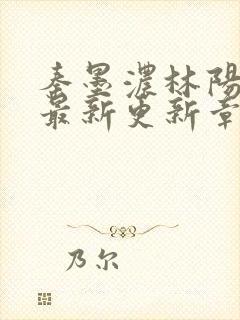 秦墨濃林陽
最新更新章
乃尔